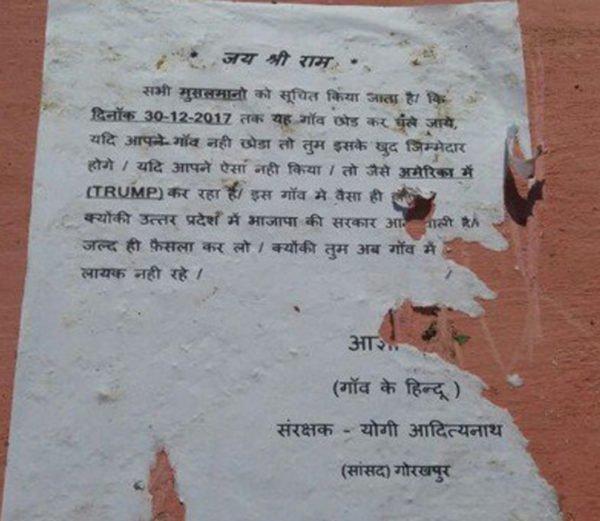 * जय श्री राम *
सभी मुसलमानो को सूचित किया जाता है/ कि
दिनाँक 30-12-2017 तक यह गाँव छोड कर चले जाये,
यदि आपने गाँव नही छोडा तो तुम इसके खुद जिम्मेदार
होगे / यदि आपने ऐसा नही किया / तो जैसे अमेरिका में
(TRUMP) कर रहा है/ इस गांव मे वैसा ही
क्योंकी उत्तर प्रदेश में भाजापा की सरकार है/
जल्द ही फ़ैसला कर लो / क्योंकी तुम अब गाँव में
लायक नही रहे / /
(गाँव के हिन्दू )
संरक्षक - योगी आदित्यनाथ
(सांसद) गोरखपुर